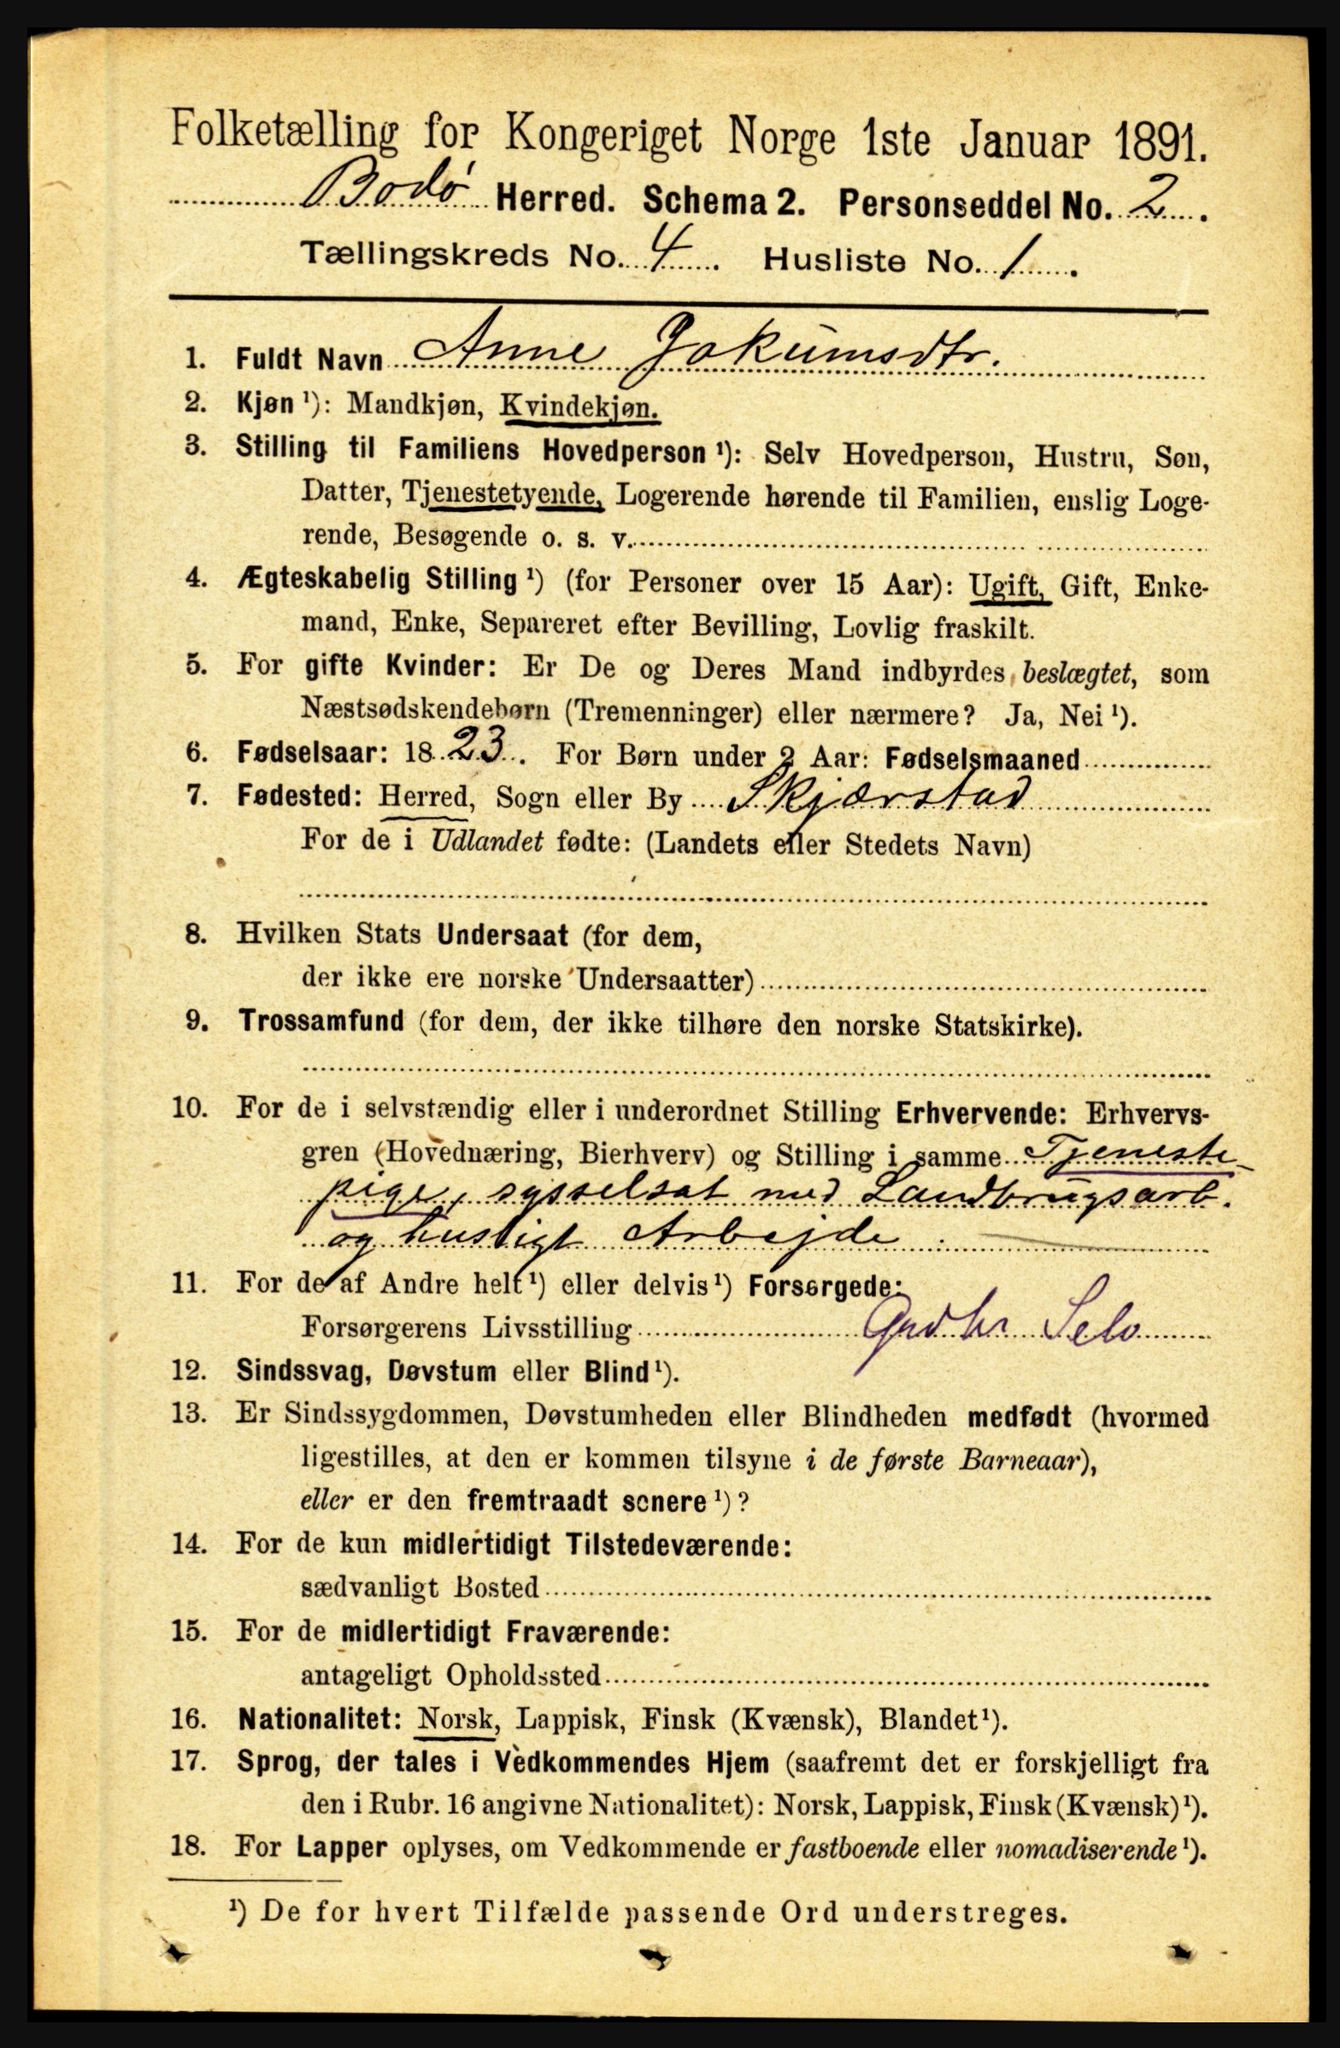 Folketælling for Kongeriget Norge 1ste Januar 1891.
Bodø Herred. Schema 2. Personseddel No. 2.
Tællingskreds No. 4. Husliste No. 1.
1. Fuldt Navn Anne Jakumsdtr.
2. Kjøn ¹): Mandkjøn, Kvindekjøn.
3. Stilling til Familiens Hovedperson ¹): Selv Hovedperson, Hustru, Søn,
Datter, Tjenestetyende, Logerende hørende til Familien, enslig Loge-
rende, Besøgende o. s. v.
4. Ægteskabelig Stilling ¹) (for Personer over 15 Aar): Ugift, Gift, Enke-
mand, Enke, Separeret efter Bevilling, Lovlig fraskilt.
5. For gifte Kvinder: Er De og Deres Mand indbyrdes beslægtet, som
Næstsødskendebørn (Tremenninger) eller nærmere? Ja, Nei ¹).
6. Fødselsaar: 1823. For Børn under 2 Aar: Fødselsmaaned
7. Fødested: Herred, Sogn eller By Skjærstad
For de i Udlandet fødte: (Landets eller Stedets Navn)
8. Hvilken Stats Undersaat (for dem,
der ikke ere norske Undersaatter)
9. Trossamfund (for dem, der ikke tilhøre den norske Statskirke).
10. For de i selvstændig eller i underordnet Stilling Erhvervende: Erhvervs-
gren (Hovednæring, Bierhverv) og Stilling i samme Tjeneste-
pige, sysselsat med Landbrugsarb.
og husligt Arbejde
11. For de af Andre helt ¹) eller delvis ¹) Forsørgede:
Forsørgerens Livsstilling Gaardbr Selv
12. Sindssvag, Døvstum eller Blind ¹).
13. Er Sindssygdommen, Døvstumheden eller Blindheden medfødt (hvormed
ligestilles, at den er kommen tilsyne i de første Barneaar),
eller er den fremtraadt senere ¹)?
14. For de kun midlertidigt Tilstedeværende:
sædvanligt Bosted
15. For de midlertidigt Fraværende:
antageligt Opholdssted
16. Nationalitet: Norsk, Lappisk, Finsk (Kvænsk), Blandet ¹).
17. Sprog, der tales i Vedkommendes Hjem (saafremt det er forskjelligt fra
den i Rubr. 16 angivne Nationalitet): Norsk, Lappisk, Finsk (Kvænsk) ¹).
18. For Lapper oplyses, om Vedkommende er fastboende eller nomadiserende ¹).
¹) De for hvert Tilfælde passende Ord understreges.